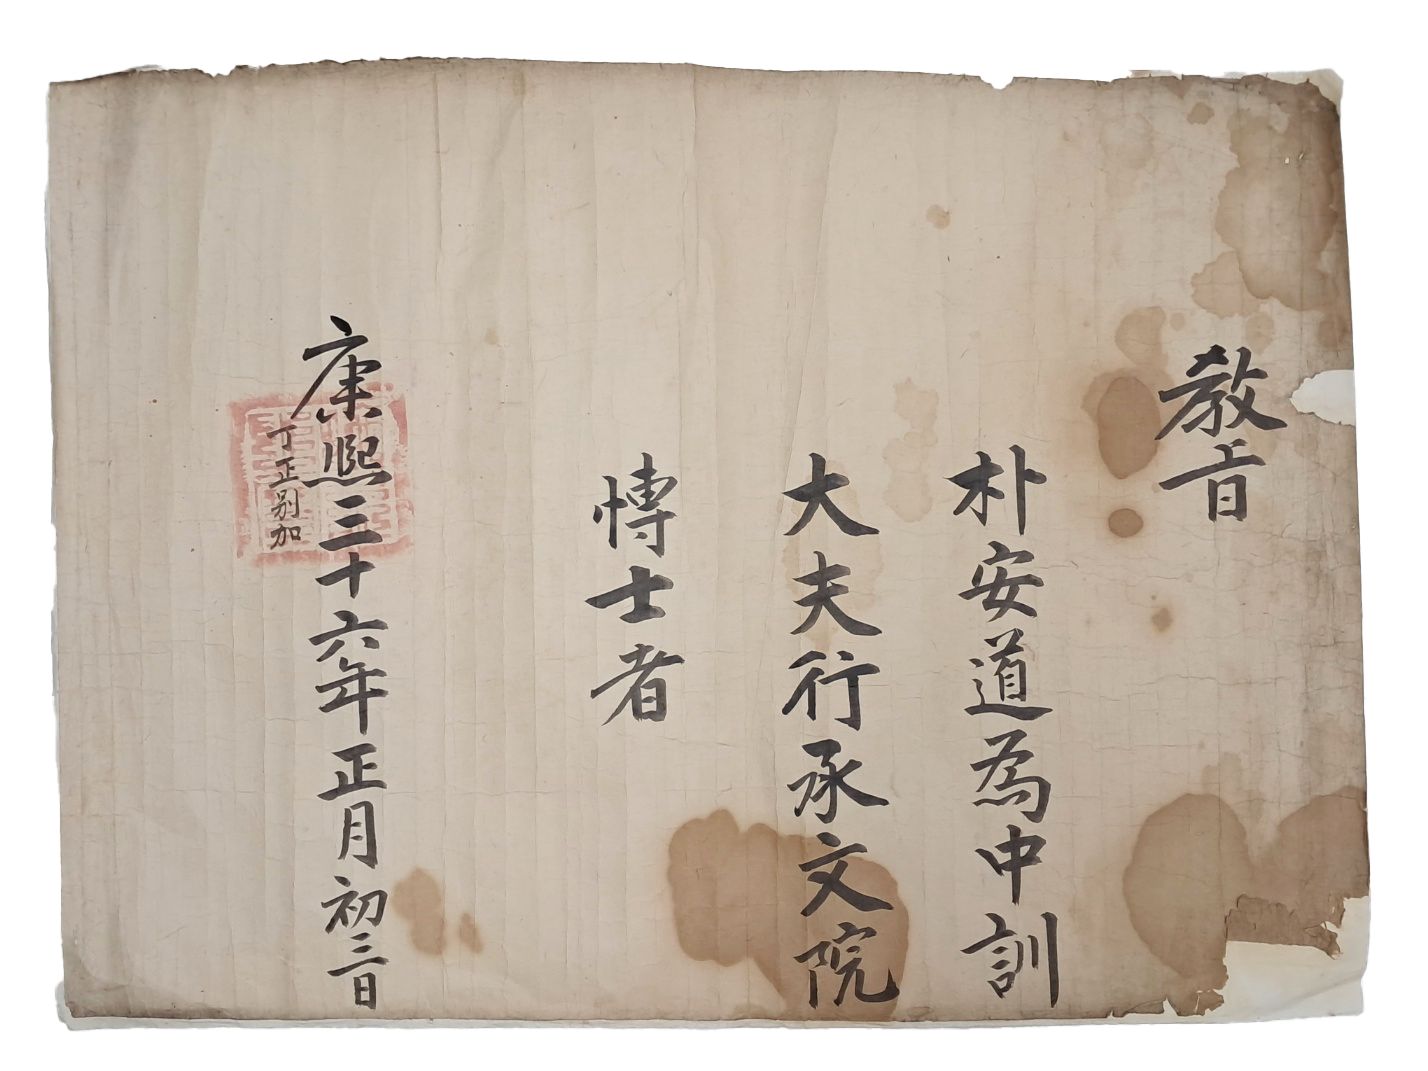 教旨
朴安道為中訓
大夫行承文院
博士者
康熙三十六年正月初三日
丁正别加